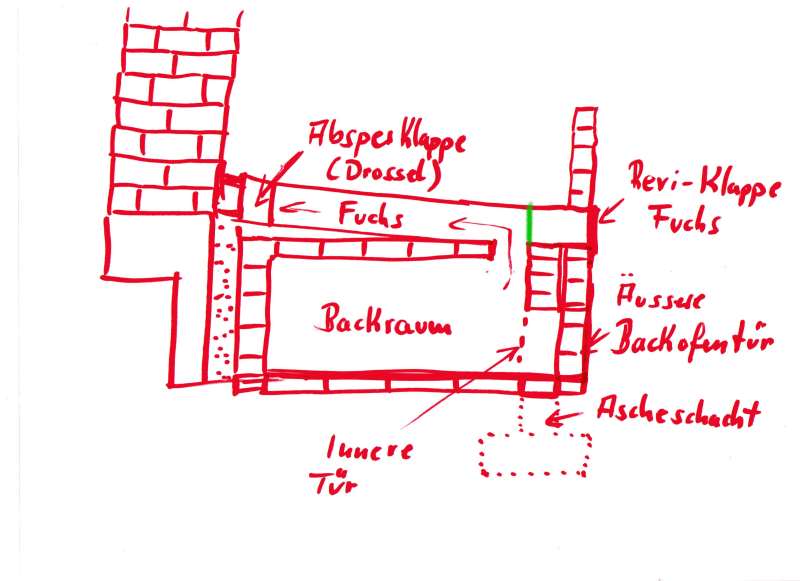 Absperklappe
(Drossel)
Revi-Klappe
Fuchs
Fuchs
Äussere
Backofentür
Backraum
Ascheschacht
Innere
Tür